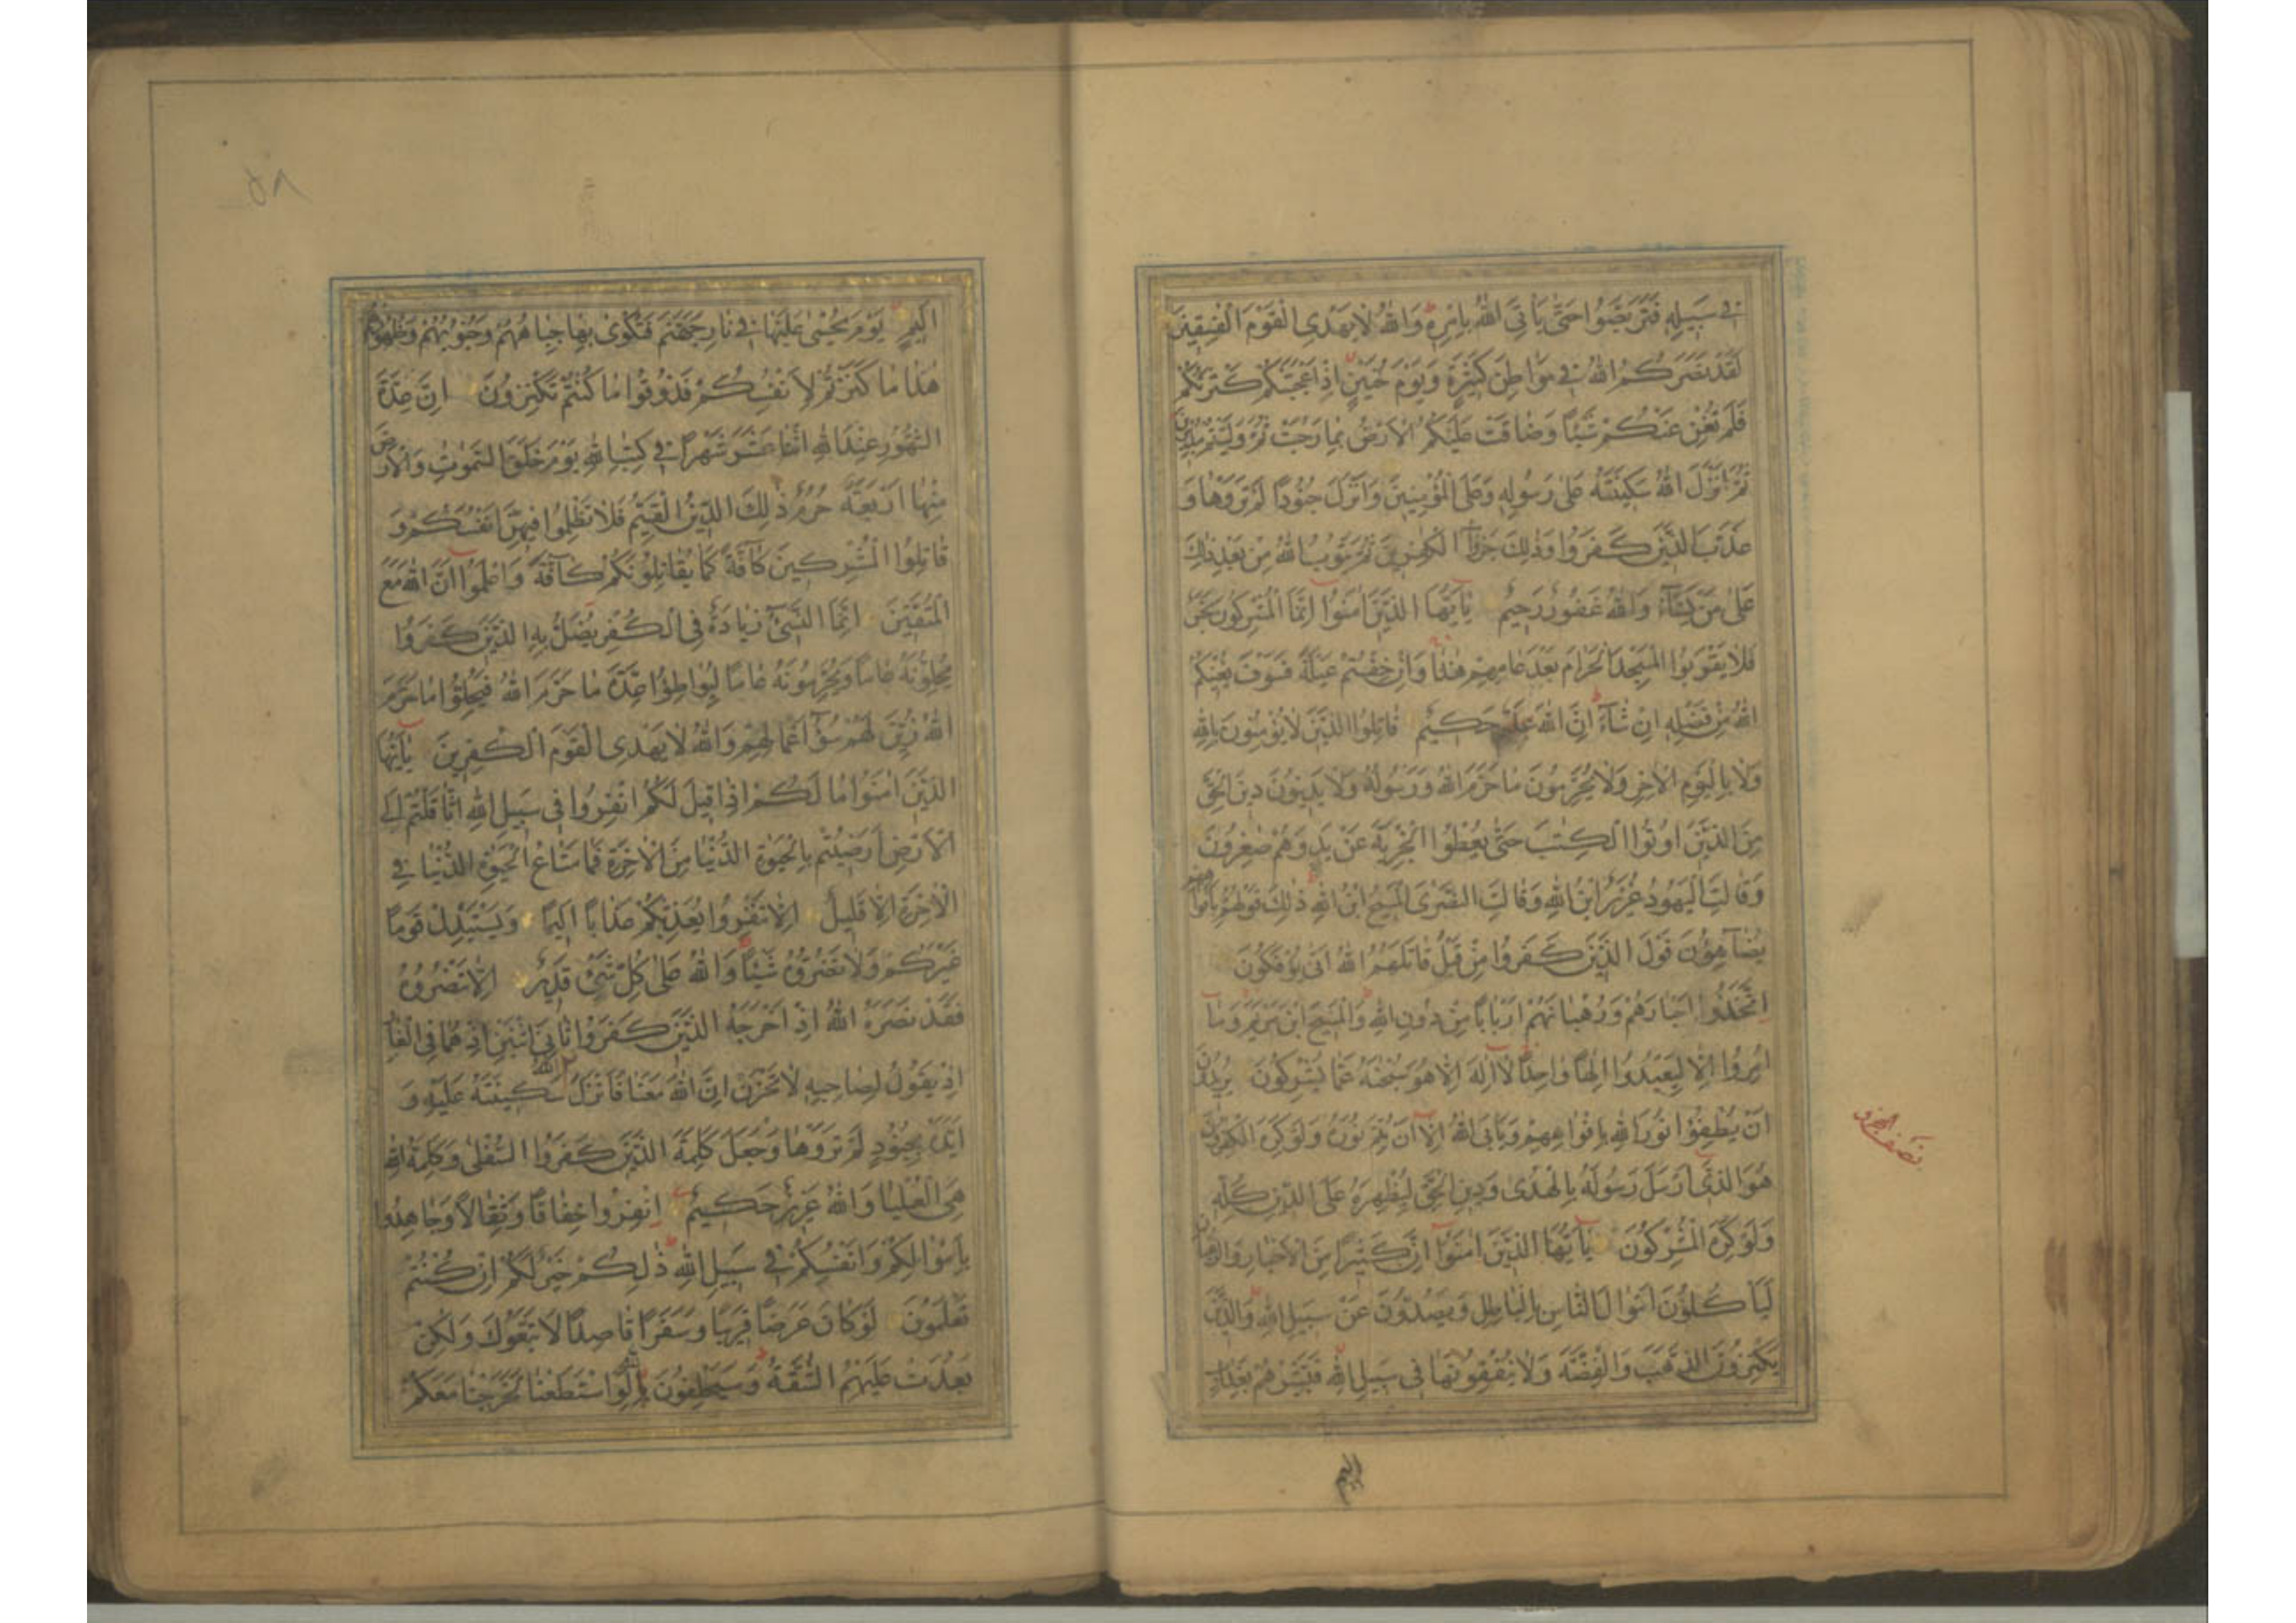 في سبيله فتربصوا حتى يأتي الله بأمره والله لا يهدي القوم الفسقين
لقد نصركم الله في مواطن كثيرة ويوم حنين اذ اعجبتكم كثرتكم
فلم تغن عنكم شيئا وضاقت عليكم الارض بما رحبت ثم وليتم مدبرين
ثم انزل الله سكينته على رسوله وعلى المؤمنين وانزل جنودا لم تروها و
عذب الذين كفروا وذلك جزاء الكفرين ثم يتوب الله من بعد ذلك
على من يشاء والله غفور رحيم يا ايها الذين امنوا انما المشركون نجس
فلا يقربوا المسجد الحرام بعد عامهم هذا وان خفتم عيلة فسوف يغنيكم
الله من فضله ان شاء ان الله عليم حكيم قاتلوا الذين لا يؤمنون بالله
ولا باليوم الاخر ولا يحرمون ما حرم الله ورسوله ولا يدينون دين الحق
من الذين اوتوا الكتب حتى يعطوا الجزية عن يد وهم صغرون
وقالت اليهود عزير ابن الله وقالت النصرى المسيح ابن الله ذلك قولهم بافواههم
يضاهؤن قول الذين كفروا من قبل قاتلهم الله انى يؤفكون
اتخذوا احبارهم ورهبانهم اربابا من دون الله والمسيح ابن مريم وما
امروا الا ليعبدوا الها واحدا لا اله الا هو سبحنه عما يشركون يريدون
ان يطفؤا نور الله بافواههم ويابى الله الا ان يتم نوره ولو كره الكفرون
هو الذي ارسل رسوله بالهدى ودين الحق ليظهره على الدين كله
ولو كره المشركون يا ايها الذين امنوا ان كثيرا من الاحبار والرهبان
ليأكلون اموال الناس بالباطل ويصدون عن سبيل الله والذين
يكنزون الذهب والفضة ولا ينفقونها في سبيل الله فبشرهم بعذاب
اليم
نصف الجزو
٥٨
اليم يوم يحمى عليها في نار جهنم فتكوى بها جباههم وجنوبهم وظهورهم
هذا ما كنزتم لانفسكم فذوقوا ما كنتم تكنزون ان عدة
الشهور عند الله اثنا عشر شهرا في كتب الله يوم خلق السموت والارض
منها اربعة حرم ذلك الدين القيم فلا تظلموا فيهن انفسكم و
قاتلوا المشركين كآفة كما يقاتلونكم كآفة واعلموا ان الله مع
المتقين انما النسيء زيادة في الكفر يضل به الذين كفروا
يحلونه عاما ويحرمونه عاما ليواطؤا عدة ما حرم الله فيحلوا ما حرم
الله زين لهم سوء اعمالهم والله لا يهدي القوم الكفرين يا ايها
الذين امنوا ما لكم اذا قيل لكم انفروا في سبيل الله اثاقلتم الى
الارض ارضيتم بالحيوة الدنيا من الاخرة فما متاع الحيوة الدنيا في
الاخرة الا قليل الا تنفروا يعذبكم عذابا اليما ويستبدل قوما
غيركم ولا تضروه شيئا والله على كل شيء قدير الا تنصروه
فقد نصره الله اذ اخرجه الذين كفروا ثاني اثنين اذ هما في الغار
اذ يقول لصاحبه لا تحزن ان الله معنا فانزل الله سكينته عليه و
ايده بجنود لم تروها وجعل كلمة الذين كفروا السفلى وكلمة الله
هي العليا والله عزيز حكيم انفروا خفافا وثقالا وجاهدوا
باموالكم وانفسكم في سبيل الله ذلكم خير لكم ان كنتم
تعلمون لو كان عرضا قريبا وسفرا قاصدا لاتبعوك ولكن
بعدت عليهم الشقة وسيحلفون بالله لو استطعنا لخرجنا معكم